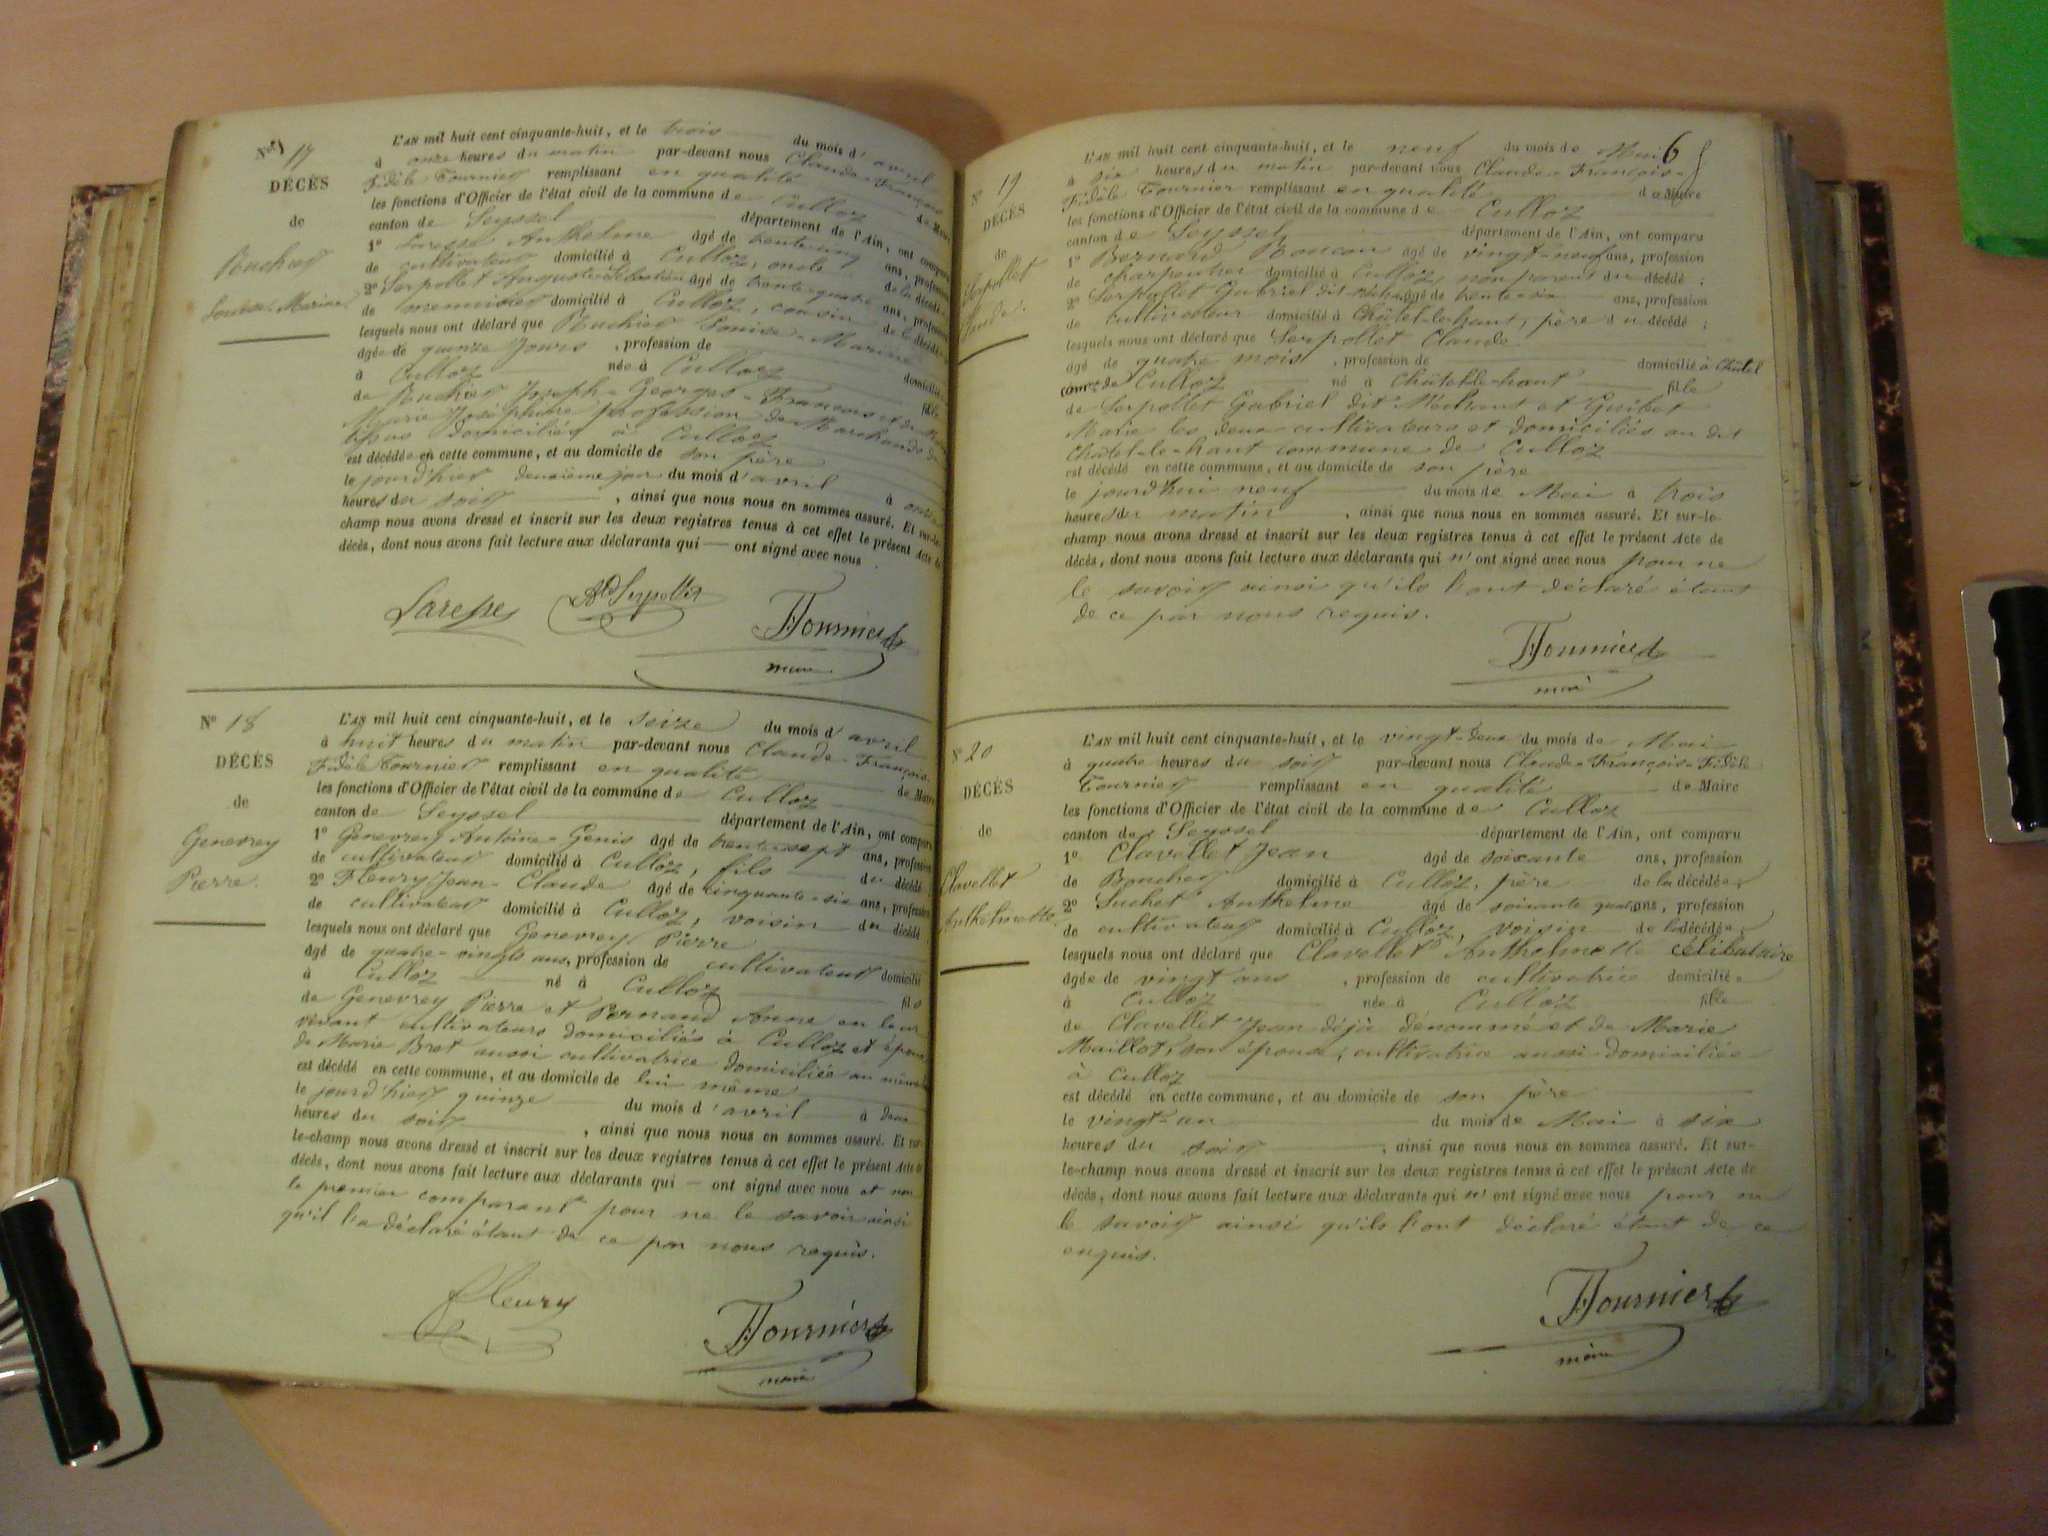 N° 17
DÉCÈS
de
Louise Marine
L'AN mil huit cent cinquante-huit, et le trois du mois d'avril
à onze heures du matin par-devant nous Claude-François
Fidèle Tournier remplissant en qualité de Maire
les fonctions d'Officier de l'état civil de la commune de Culloz
canton de Seyssel département de l'Ain, ont comparu
1° Anthelme âgé de trente cinq ans, profession
de cultivateur domicilié à Culloz, oncle de la décédée
2° Serpollet Auguste âgé de trente-quatre ans, profession
de menuisier domicilié à Culloz, cousin de la décédée
lesquels nous ont déclaré que Louise-Marine
âgée de quinze jours, profession de domiciliée
à Culloz née à Culloz fille
de Joseph-Georges-François et de
Marie Joséphine profession de Marchands de
domiciliés à Culloz
est décédée en cette commune, et au domicile de son père
le jourd'hier deuxième jour du mois d'avril à onze
heures du soir, ainsi que nous nous en sommes assuré. Et sur-le-
champ nous avons dressé et inscrit sur les deux registres tenus à cet effet le présent Acte de
décès, dont nous avons fait lecture aux déclarants qui — ont signé avec nous.
Ad Serpollet
Tournier
maire
N° 18
DÉCÈS
de
Genevrey
Pierre.
L'AN mil huit cent cinquante-huit, et le seize du mois d'avril
à huit heures du matin par-devant nous Claude-François-
Fidèle Tournier remplissant en qualité de Maire
les fonctions d'Officier de l'état civil de la commune de Culloz
canton de Seyssel département de l'Ain, ont comparu
1° Genevrey Antoine-Genis âgé de trente-sept ans, profession
de cultivateur domicilié à Culloz, fils du décédé
2° Fleury Jean-Claude âgé de cinquante-six ans, profession
de cultivateur domicilié à Culloz, voisin du décédé
lesquels nous ont déclaré que Genevrey Pierre
âgé de quatre-vingts ans, profession de cultivateur domicilié
à Culloz né à Culloz fils
de Genevrey Pierre et Pernand Anne en leur
vivant cultivateurs domiciliés à Culloz et époux
de Marie Bret aussi cultivatrice domiciliée au même
est décédé en cette commune, et au domicile de lui même
le jourd'hier quinze du mois d'avril à deux
heures du soir, ainsi que nous nous en sommes assuré. Et sur-
le-champ nous avons dressé et inscrit sur les deux registres tenus à cet effet le présent Acte de
décès, dont nous avons fait lecture aux déclarants qui — ont signé avec nous et non
le premier comparant pour ne le savoir ainsi
qu'il l'a déclaré étant de ce par nous requis.
Fleury
Tournier
maire
6
N° 19
DÉCÈS
de
Serpollet
Claude.
L'AN mil huit cent cinquante-huit, et le neuf du mois de Mai
à six heures du matin par-devant nous Claude-François-
Fidèle Tournier remplissant en qualité de Maire
les fonctions d'Officier de l'état civil de la commune de Culloz
canton de Seyssel département de l'Ain, ont comparu
1° Bernard âgé de vingt-neuf ans, profession
de charpentier domicilié à Culloz, non parent du décédé;
2° Serpollet Gabriel dit Méchant âgé de trente-six ans, profession
de cultivateur domicilié à Châtel-le-haut, père du décédé;
lesquels nous ont déclaré que Serpollet Claude
âgé de quatre mois, profession de domicilié à Châtel
comne de Culloz né à Châtel-le-haut fils
de Serpollet Gabriel dit Méchant et Guibet
Marie les deux cultivateurs et domiciliés au dit
Châtel-le-haut commune de Culloz
est décédé en cette commune, et au domicile de son père
le jourd'hui neuf du mois de Mai à trois
heures du matin, ainsi que nous nous en sommes assuré. Et sur-le-
champ nous avons dressé et inscrit sur les deux registres tenus à cet effet le présent Acte de
décès, dont nous avons fait lecture aux déclarants qui n'ont signé avec nous pour ne
le savoir ainsi qu'ils l'ont déclaré étant
de ce par nous requis.
Tournier
maire
N° 20
DÉCÈS
de
Clavellet
Anthelmette.
L'AN mil huit cent cinquante-huit, et le vingt-deux du mois de Mai
à quatre heures du soir par-devant nous Claude-François-Fidèle
Tournier remplissant en qualité de Maire
les fonctions d'Officier de l'état civil de la commune de Culloz
canton de Seyssel département de l'Ain, ont comparu
1° Clavellet Jean âgé de soixante ans, profession
de Boucher domicilié à Culloz, père de la décédée;
2° Suchet Anthelme âgé de soixante quatre ans, profession
de cultivateur domicilié à Culloz, voisin de la décédée;
lesquels nous ont déclaré que Clavellet Anthelmette célibataire
âgée de vingt ans, profession de cultivatrice domiciliée
à Culloz née à Culloz fille
de Clavellet Jean déjà dénommé et de Marie
Maillot, son épouse, cultivatrice aussi domiciliée
à Culloz
est décédé en cette commune, et au domicile de son père
le vingt-un du mois de Mai à six
heures du soir, ainsi que nous nous en sommes assuré. Et sur-
le-champ nous avons dressé et inscrit sur les deux registres tenus à cet effet le présent Acte de
décès, dont nous avons fait lecture aux déclarants qui n'ont signé avec nous pour ne
le savoir ainsi qu'ils l'ont déclaré étant de ce
enquis.
Tournier
maire